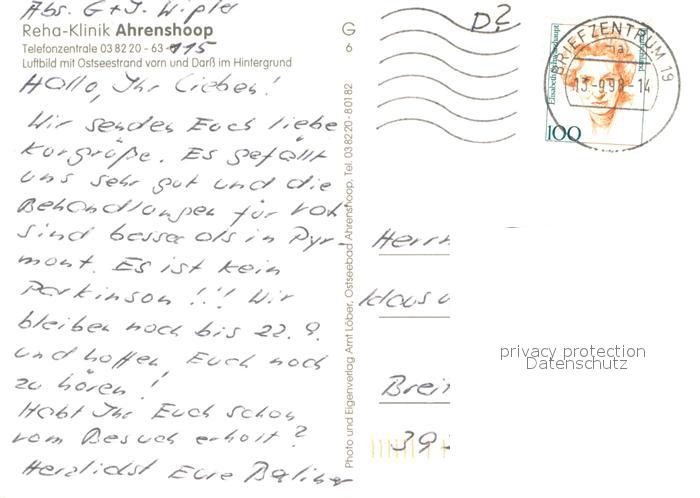 Abs. G + J. Wipler
Reha-Klinik Ahrenshoop
Telefonzentrale 03 82 20 - 63 - 115
Luftbild mit Ostseestrand vorn und Darß im Hintergrund
G
6
Hallo, Ihr Lieben!
Wir senden Euch liebe
Kurgrüße. Es gefällt
uns sehr gut und die
Behandlungen für
sind besser als in Pyr-
mont. Es ist kein
Parkinson!!! Wir
bleiben noch bis 22. 9.
und hoffen, Euch noch
zu hören!
Habt Ihr Euch schon
vom Besuch erholt?
Herzlichst Eure
Photo und Eigenverlag Arnt Löber, Ostseebad Ahrenshoop, Tel. 03 82 20 - 8 01 82
BRIEFZENTRUM 19
13.-9.98-14
100
Herrn
Klaus u
Brei
39
privacy protection
Datenschutz